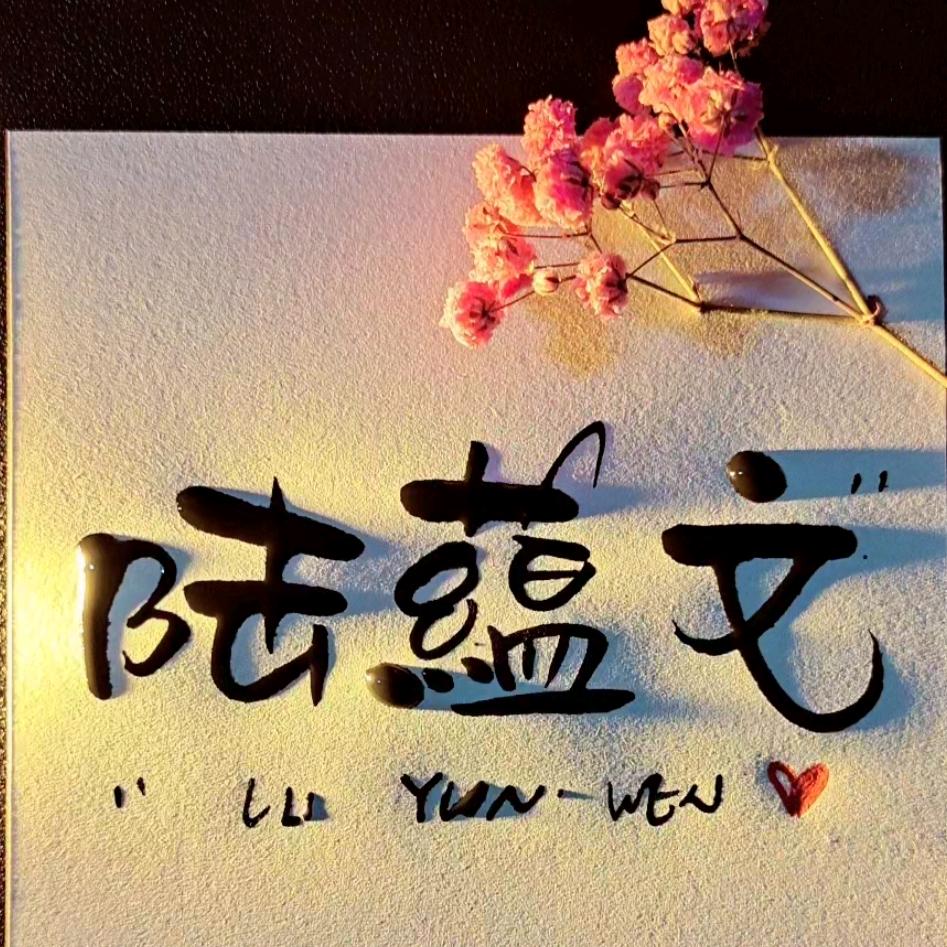 陆蕴文"
" LU YUN-WEN